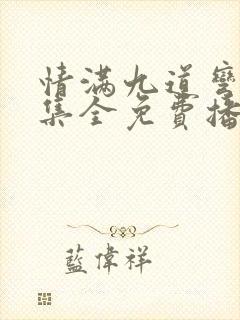 情满九道弯
集全免費播
藍偉祥